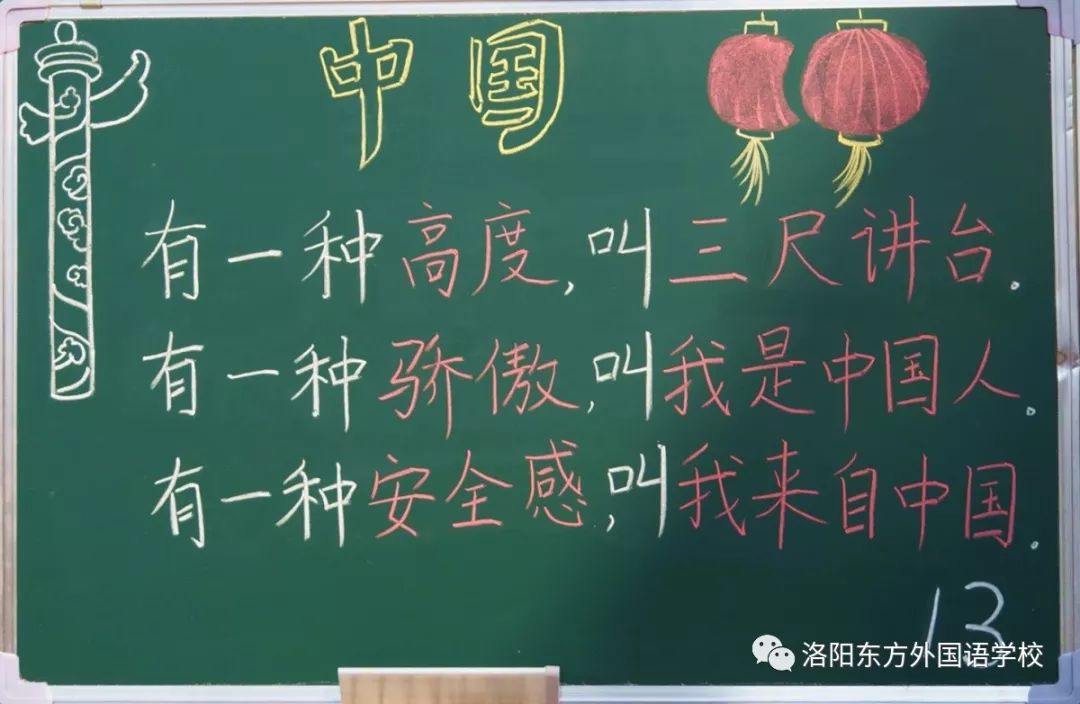 中国
有一种高度,叫三尺讲台.
有一种骄傲,叫我是中国人.
有一种安全感,叫我来自中国.
13
洛阳东方外国语学校